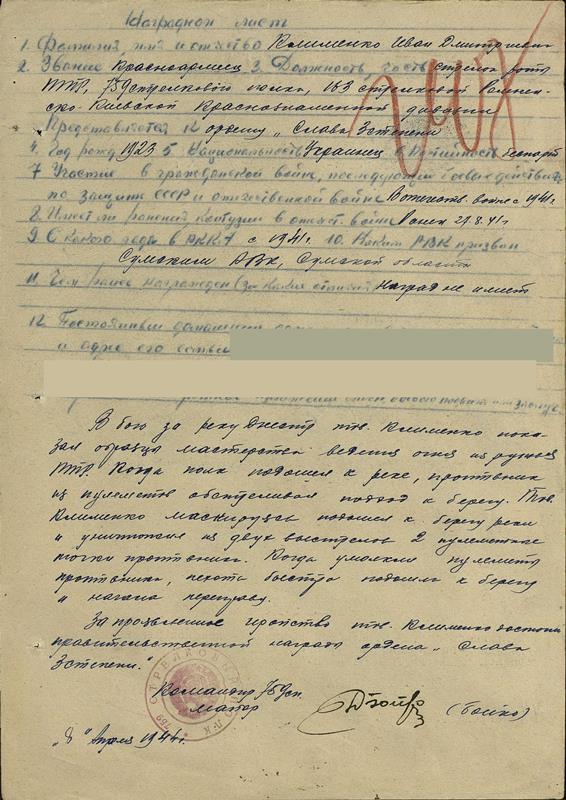 Наградной лист
1. Фамилия, имя и отчество Клименко Иван Дмитриевич
2. Звание Красноармеец 3. Должность, часть стрелок роты
ПТР, 759 стрелкового полка, 163 стрелковой Ромнен-
ско-Киевской Краснознаменной дивизии
Представляется к ордену „Слава 3 степени"
4. Год рожд 1923 5 Национальность Украинец 6 Партийность беспарт
7. Участие в гражданской войне, последующих боевых действиях
по защите СССР и отечественной войне В отечеств. войне с 1941г.
8. Имеет ли ранения контузии в отечест войне Ранен 29.8.41г
9. С какого года в РККА с 1941г. 10. Каким РВК призван
Сумским РВК, Сумской области
11. Чем ранее награжден (за какие отличия) Наград не имеет
12. Постоянный домашний
и адрес его семьи
В бою за реку Днестр тов. Клименко пока-
зал образцы мастерства ведения огня из ружья
ПТР. Когда полк подошел к реке, противник
из пулеметов обстреливал подход к берегу. Тов.
Клименко маскируясь подошел к берегу реки
и уничтожил из двух выстрелов 2 пулеметные
точки противника. Когда умолкли пулеметы
противника, пехота быстро подошла к берегу
и начала переправу.
За проявленное геройство тов. Клименко достоин
правительственной награды ордена „Слава
3 степени."
Командир 759 сп.
майор
(Бойко)
„8" Апреля 1944г.